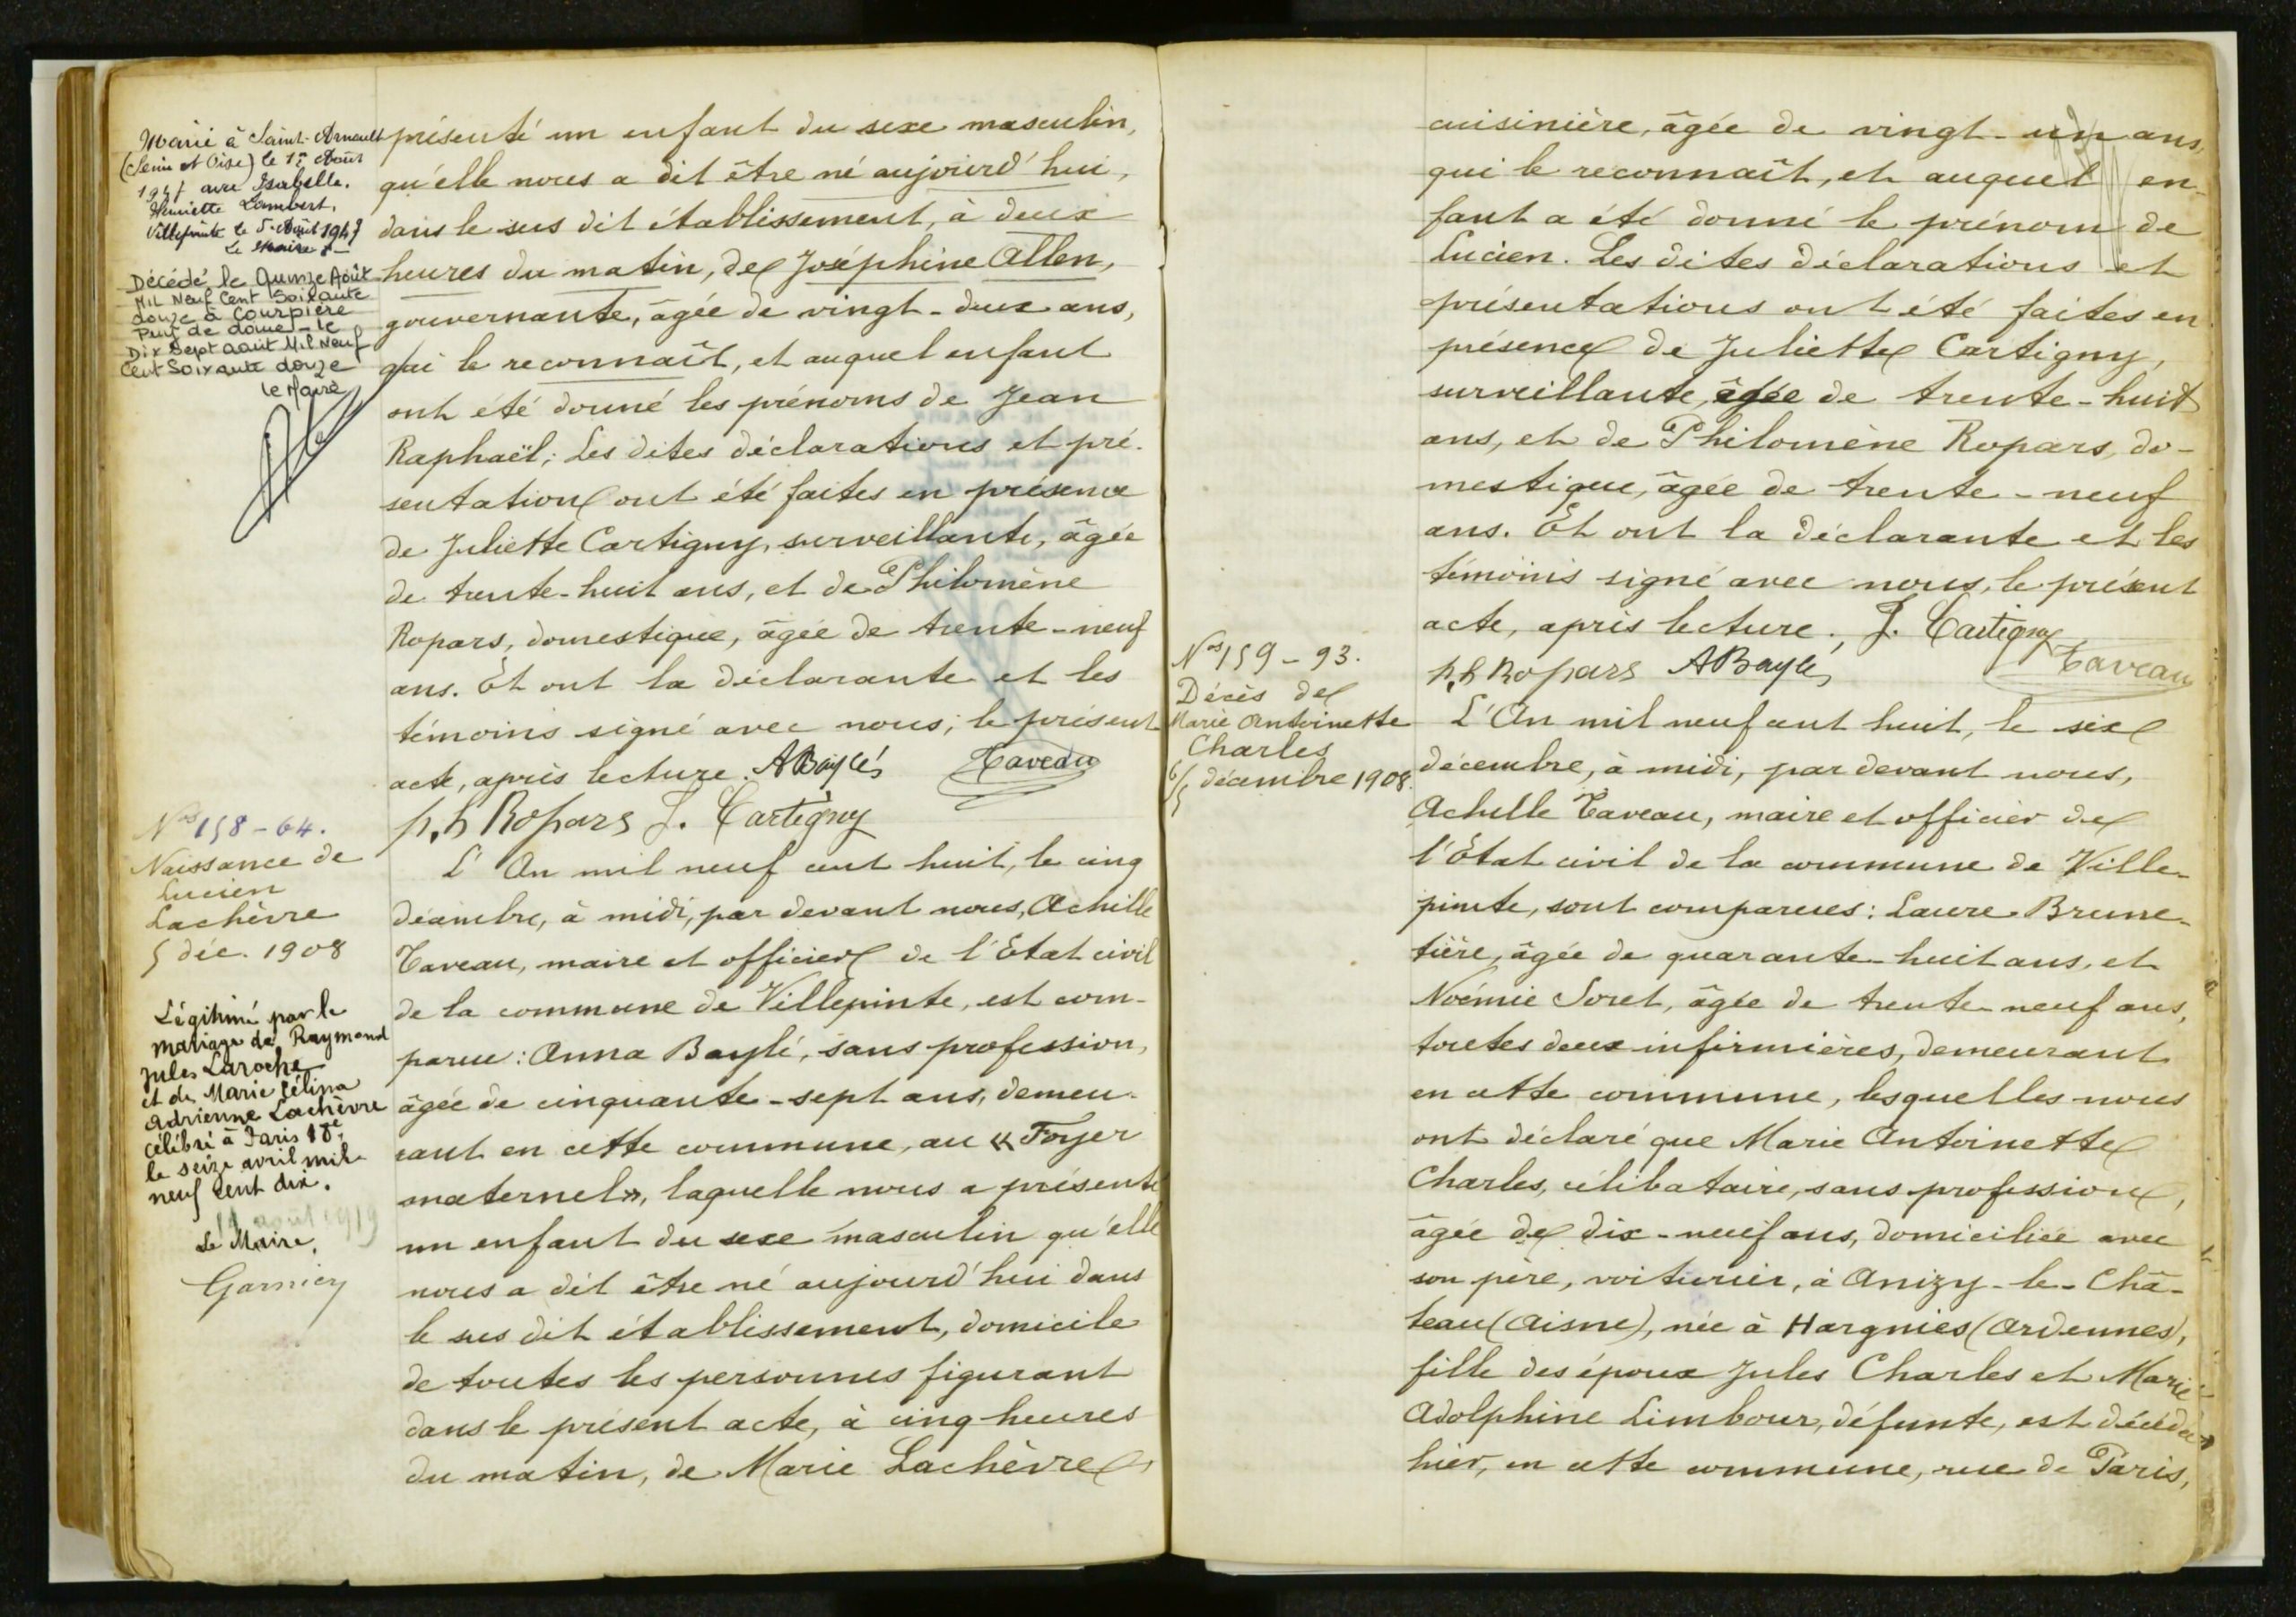 Marié à Saint-Arnoult
(Seine et Oise) le 1er Août
1947 avec Isabelle.
Henriette Lambert.
Villepinte le 5 Août 1947
Le Maire
Décédé le Quinze Août
Mil Neuf Cent Soixante
douze à Courpière
Puy de dome - le
Dix Sept août Mil Neuf
Cent Soixante douze
le Maire
présenté un enfant du sexe masculin,
qu'elle nous a dit être né aujourd'hui,
dans le sus dit établissement, à deux
heures du matin, de Joséphine Allen,
gouvernante, âgée de vingt-deux ans,
qui le reconnaît, et auquel enfant
ont été donné les prénoms de Jean
Raphaël; Les dites déclarations et pré-
sentation ont été faites en présence
de Juliette Cartigny, surveillante, âgée
de trente-huit ans, et de Philomène
Ropars, domestique, âgée de trente-neuf
ans. Et ont la déclarante et les
témoins signé avec nous, le présent
acte, après lecture. ABaylé Taveau
p.h Ropars J. Cartigny
Nos 158-64.
Naissance de
Lucien
Lachèvre
5 déc. 1908
Légitimé par le
mariage de Raymond
Jules Laroche
et de Marie Célina
Adrienne Lachèvre
célébré à Paris 18e,
le seize avril mil
neuf cent dix.
11 août 1919
Le Maire,
Garnier
L'An mil neuf cent huit, le cinq
décembre, à midi, par devant nous, Achille
Taveau, maire et officier de l'Etat civil
de la commune de Villepinte, est com-
parue: Anna Baylé, sans profession,
âgée de cinquante-sept ans, demeu-
rant en cette commune, au « Foyer
maternel », laquelle nous a présenté
un enfant du sexe masculin qu'elle
nous a dit être né aujourd'hui dans
le sus dit établissement, domicile
de toutes les personnes figurant
dans le présent acte, à cinq heures
du matin, de Marie Lachèvre,
cuisinière, âgée de vingt-un ans,
qui le reconnaît, et auquel en-
fant a été donné le prénom de
Lucien. Les dites déclarations et
présentations ont été faites en
présence de Juliette Cartigny,
surveillante, âgée de trente-huit
ans, et de Philomène Ropars, do-
mestique, âgée de trente-neuf
ans. Et ont la déclarante et les
témoins signé avec nous, le présent
acte, après lecture. J. Cartigny
p.h Ropars ABaylé Taveau
Nos 159-93.
Décès de
Marie Antoinette
Charles
5/6 décembre 1908.
L'An mil neuf cent huit, le six
décembre, à midi, par devant nous,
Achille Taveau, maire et officier de
l'Etat civil de la commune de Ville-
pinte, sont comparues: Laure Brune-
tière, âgée de quarante-huit ans, et
Noémie Soret, âgée de trente-neuf ans,
toutes deux infirmières, demeurant
en cette commune, lesquelles nous
ont déclaré que Marie Antoinette
Charles, célibataire, sans profession,
âgée de dix-neuf ans, domiciliée avec
son père, voiturier, à Anizy-le-Châ-
teau (Aisne), née à Hargnies (Ardennes),
fille des époux Jules Charles et Marie
Adolphine Limbour, défunte, est décédée
hier, en cette commune, rue de Paris,